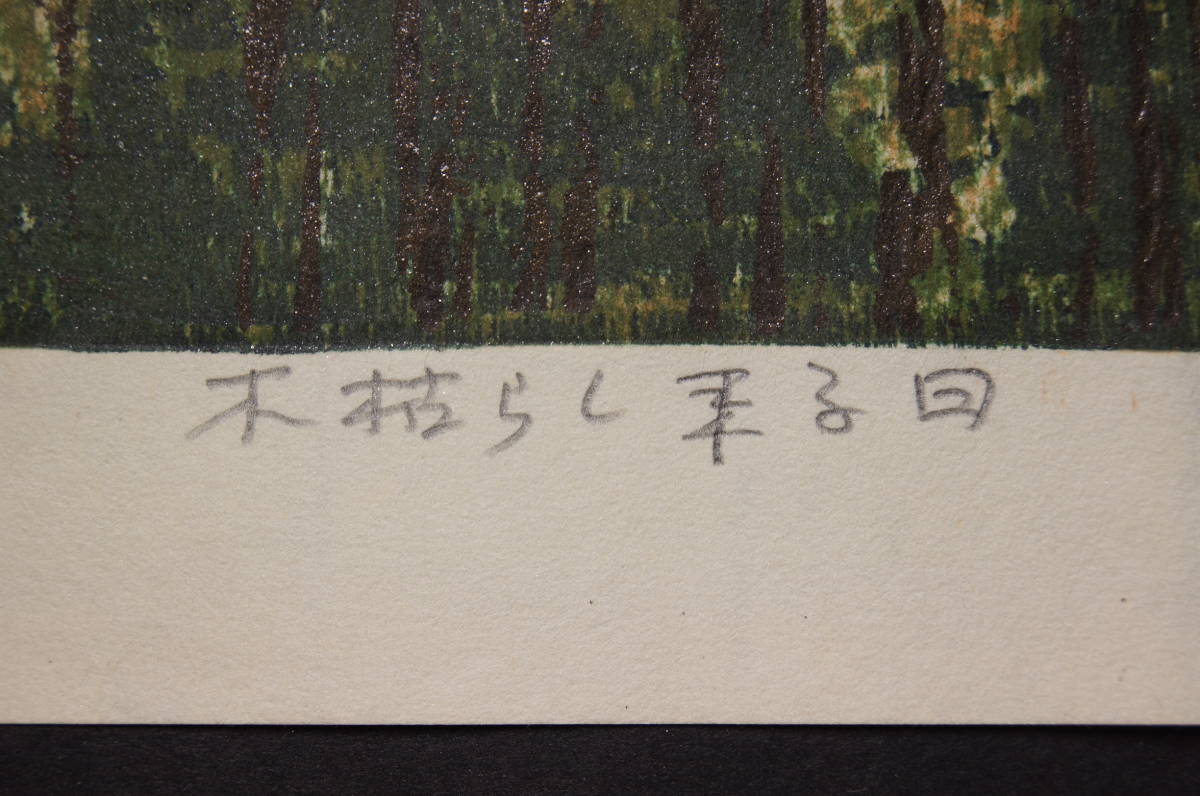 木枯らし来る日